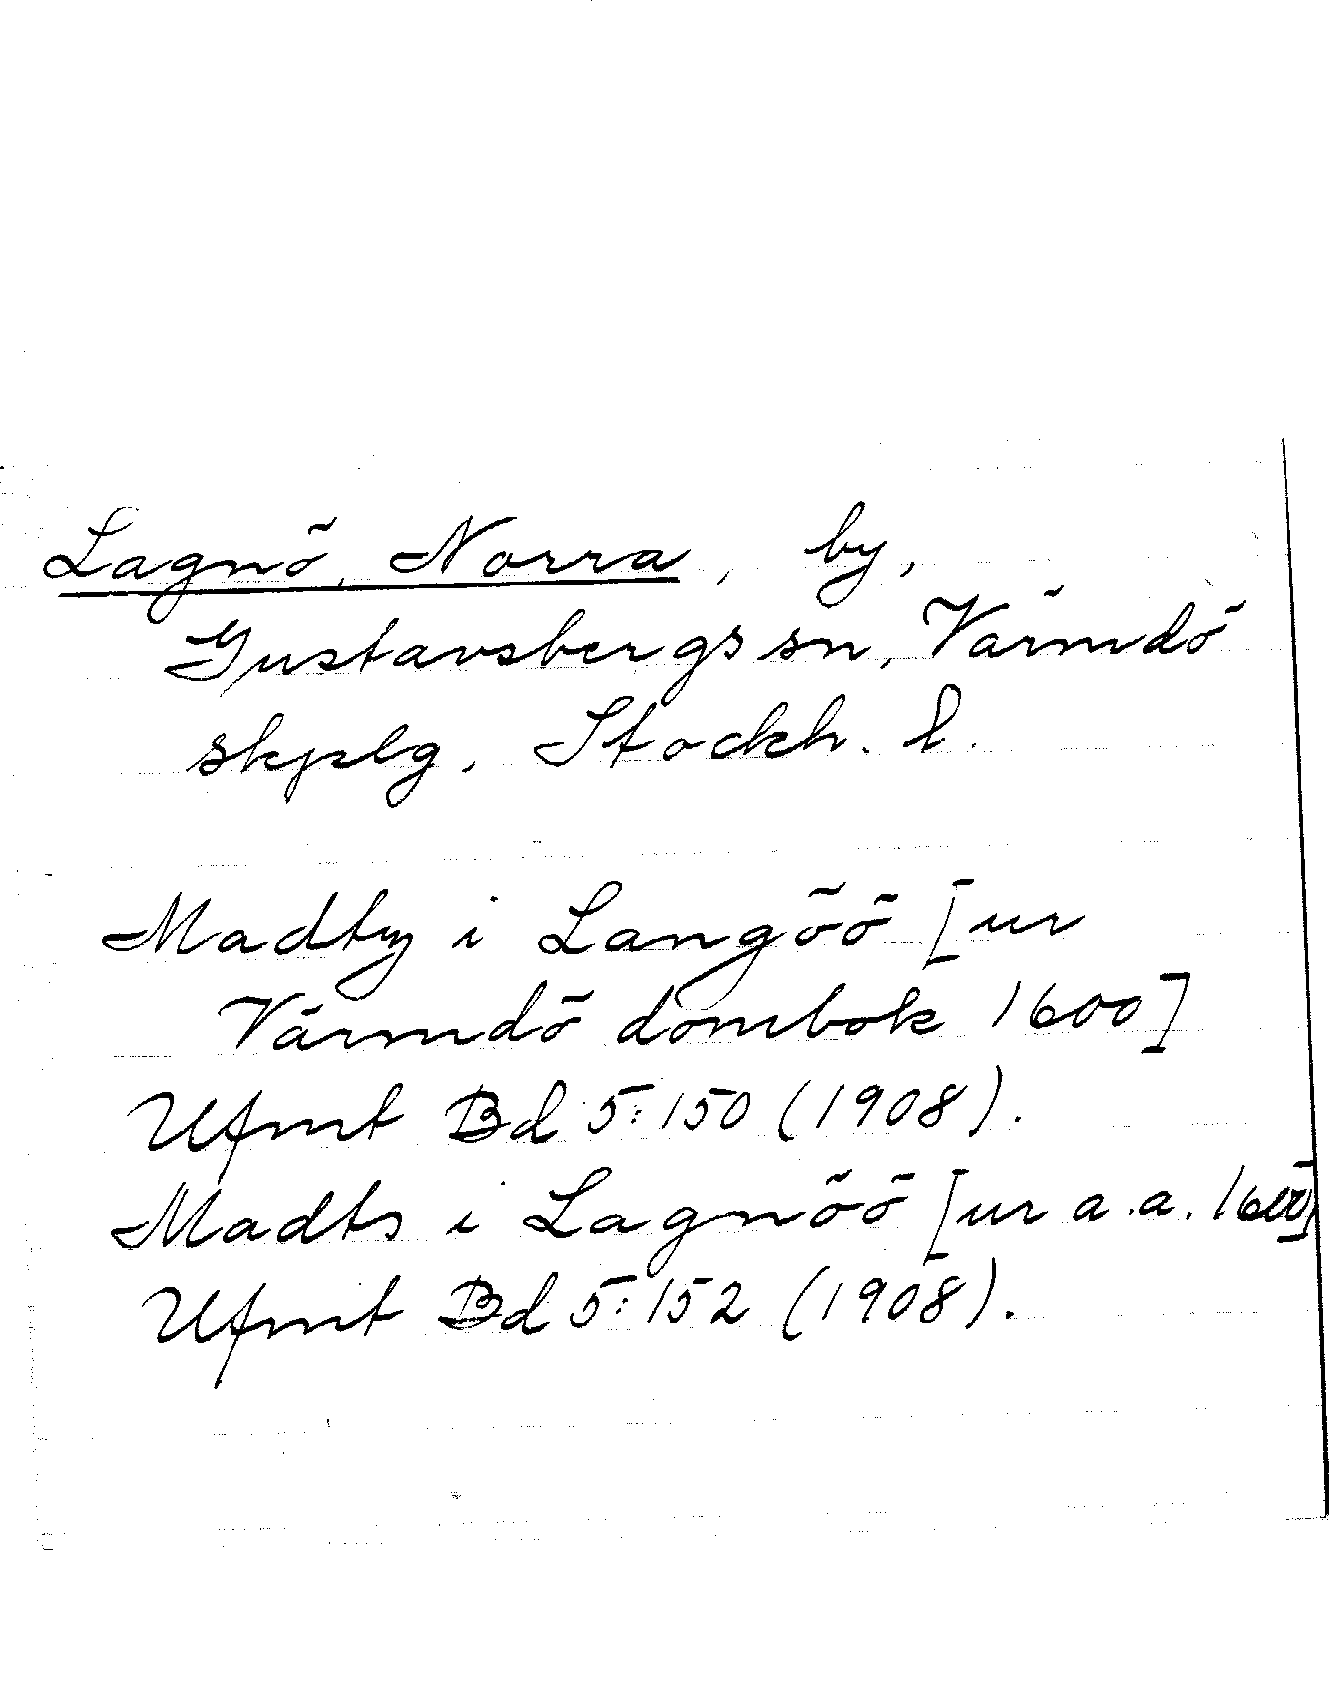 Lagnö, Norra, by,
Gustavsbergs sn, Värmdö
skplg, Stockh. l.
Madtz i Langöö [ur
Värmdö dombok 1600]
Ufmt Bd 5:150 (1908).
Madts i Lagnöö [ur a.a. 1600]
Ufmt Bd 5:152 (1908).